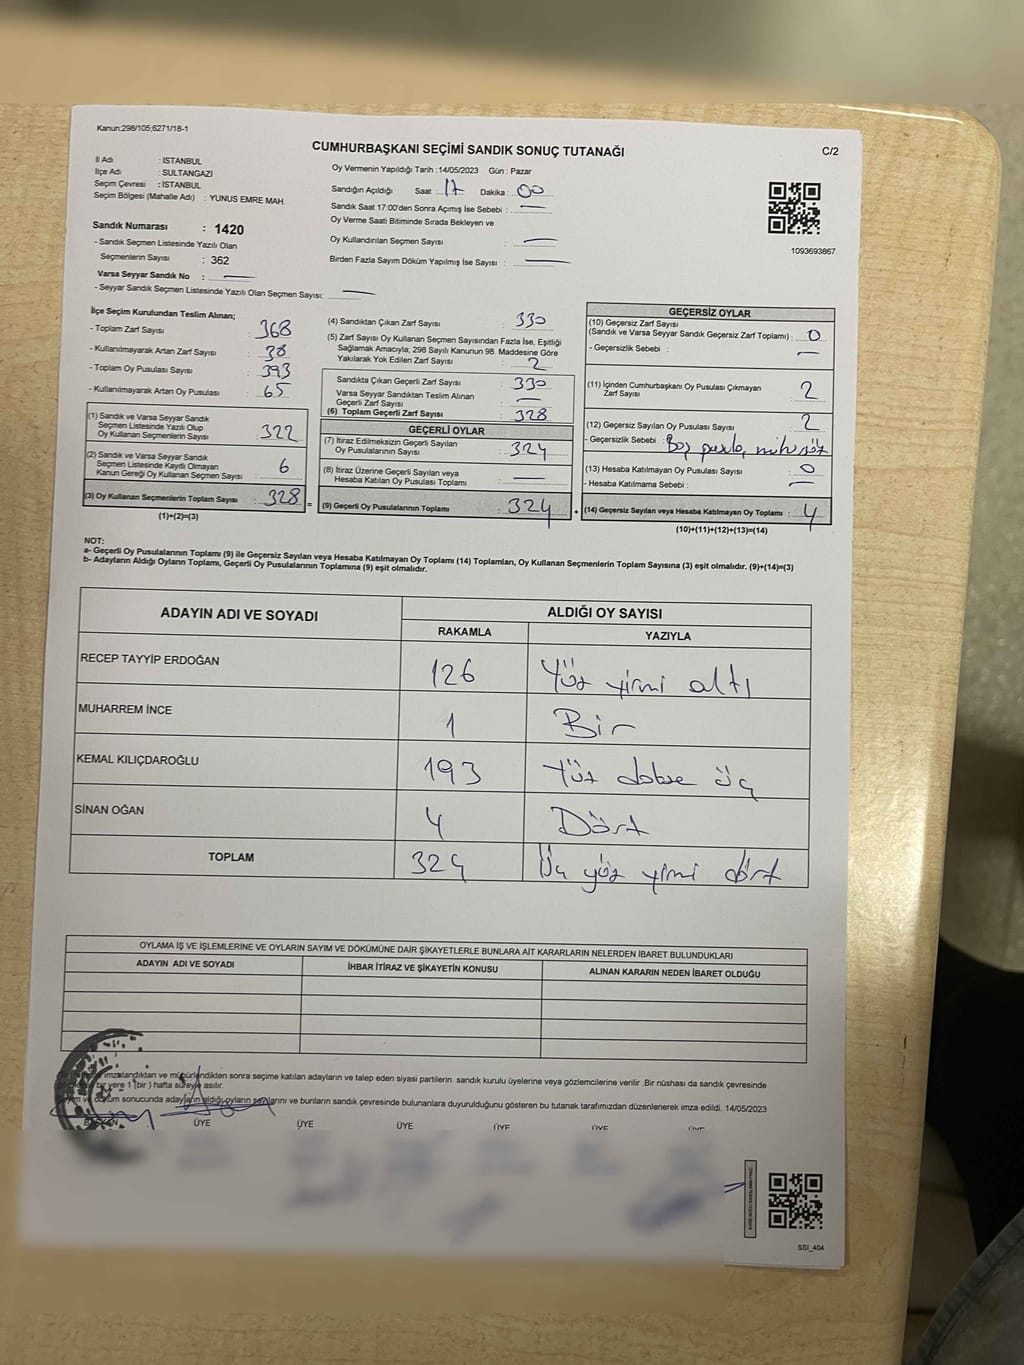 Kanun:298/105;6271/18-1
CUMHURBAŞKANI SEÇİMİ SANDIK SONUÇ TUTANAĞI
C/2
İl Adı : İSTANBUL
İlçe Adı : SULTANGAZİ
Seçim Çevresi : İSTANBUL
Seçim Bölgesi (Mahalle Adı) : YUNUS EMRE MAH.
Oy Vermenin Yapıldığı Tarih :14/05/2023 Gün : Pazar
Sandığın Açıldığı Saat : 17 Dakika : 00
Sandık Saat 17:00'den Sonra Açımış İse Sebebi : —
Oy Verme Saati Bitiminde Sırada Bekleyen ve
Oy Kullandırılan Seçmen Sayısı : —
Birden Fazla Sayım Döküm Yapılmış İse Sayısı : —
1093693867
Sandık Numarası : 1420
- Sandık Seçmen Listesinde Yazılı Olan
Seçmenlerin Sayısı : 362
Varsa Seyyar Sandık No : —
- Seyyar Sandık Seçmen Listesinde Yazılı Olan Seçmen Sayısı: —
İlçe Seçim Kurulundan Teslim Alınan;
- Toplam Zarf Sayısı : 368
- Kullanılmayarak Artan Zarf Sayısı : 38
- Toplam Oy Pusulası Sayısı : 393
- Kullanılmayarak Artan Oy Pusulası : 65
(1) Sandık ve Varsa Seyyar Sandık
Seçmen Listesinde Yazılı Olup
Oy Kullanan Seçmenlerin Sayısı : 322
(2) Sandık ve Varsa Seyyar Sandık
Seçmen Listesinde Kayıtlı Olmayan
Kanun Gereği Oy Kullanan Seçmen Sayısı : 6
(3) Oy Kullanan Seçmenlerin Toplam Sayısı : 328 =
(1)+(2)=(3)
(4) Sandıktan Çıkan Zarf Sayısı : 330
(5) Zarf Sayısı Oy Kullanan Seçmen Sayısından Fazla İse, Eşitliği
Sağlamak Amacıyla; 298 Sayılı Kanunun 98. Maddesine Göre
Yakılarak Yok Edilen Zarf Sayısı : 2
Sandıkta Çıkan Geçerli Zarf Sayısı : 330
Varsa Seyyar Sandıktan Teslim Alınan
Geçerli Zarf Sayısı : —
(6) Toplam Geçerli Zarf Sayısı : 328
GEÇERLİ OYLAR
(7) İtiraz Edilmeksizin Geçerli Sayılan
Oy Pusulalarının Sayısı : 324
(8) İtiraz Üzerine Geçerli Sayılan veya
Hesaba Katılan Oy Pusulası Toplamı : —
(9) Geçerli Oy Pusulalarının Toplamı : 324 +
GEÇERSİZ OYLAR
(10) Geçersiz Zarf Sayısı
(Sandık ve Varsa Seyyar Sandık Geçersiz Zarf Toplamı) : 0
- Geçersizlik Sebebi : —
(11) İçinden Cumhurbaşkanı Oy Pusulası Çıkmayan
Zarf Sayısı : 2
(12) Geçersiz Sayılan Oy Pusulası Sayısı : 2
- Geçersizlik Sebebi : Boş pusula,
(13) Hesaba Katılmayan Oy Pusulası Sayısı : 0
- Hesaba Katılmama Sebebi : —
(14) Geçersiz Sayılan veya Hesaba Katılmayan Oy Toplamı : 4
(10)+(11)+(12)+(13)=(14)
NOT:
a- Geçerli Oy Pusulalarının Toplamı (9) ile Geçersiz Sayılan veya Hesaba Katılmayan Oy Toplamı (14) Toplamları, Oy Kullanan Seçmenlerin Toplam Sayısına (3) eşit olmalıdır. (9)+(14)=(3)
b- Adayların Aldığı Oyların Toplamı, Geçerli Oy Pusulalarının Toplamına (9) eşit olmalıdır.
ADAYIN ADI VE SOYADI
ALDIĞI OY SAYISI
RAKAMLA YAZIYLA
RECEP TAYYİP ERDOĞAN 126 Yüz yirmi altı
MUHARREM İNCE 1 Bir
KEMAL KILIÇDAROĞLU 193 Yüz doksan üç
SİNAN OĞAN 4 Dört
TOPLAM 324 Üç yüz yirmi dört
OYLAMA İŞ VE İŞLEMLERİNE VE OYLARIN SAYIM VE DÖKÜMÜNE DAİR ŞİKAYETLERLE BUNLARA AİT KARARLARIN NELERDEN İBARET BULUNDUKLARI
ADAYIN ADI VE SOYADI İHBAR İTİRAZ VE ŞİKAYETİN KONUSU ALINAN KARARIN NEDEN İBARET OLDUĞU
imzalandıktan ve mühürlendikten sonra seçime katılan adayların ve talep eden siyasi partilerin sandık kurulu üyelerine veya gözlemcilerine verilir. Bir nüshası da sandık çevresinde
bir yere 1 (bir) hafta süreyle asılır.
ve döküm sonucunda adayların aldığı oyların sayılarını ve bunların sandık çevresinde bulunanlara duyurulduğunu gösteren bu tutanak tarafımızdan düzenlenerek imza edildi. 14/05/2023
BAŞKAN ÜYE ÜYE ÜYE ÜYE ÜYE ÜYE
SSI_404